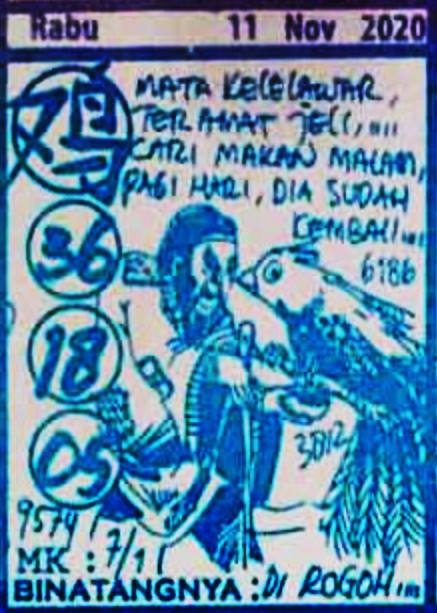 Rabu 11 Nov 2020
鸡
MATA KELELAWAR,
TERAMAT JELI,....
CARI MAKAN MALAM,
PAGI HARI, DIA SUDAH
KEMBALI...
36
6186
18
05
3812
9574
MK : 7/11
BINATANGNYA : DI ROGOH...